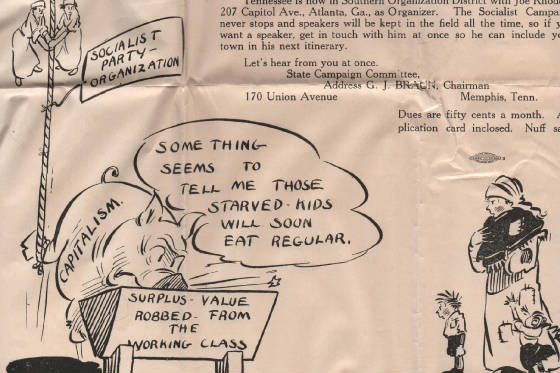 Tennessee is now in Southern Organization District with Joe
207 Capitol Ave., Atlanta, Ga., as Organizer. The Socialist
never stops and speakers will be kept in the field all the time, so if
want a speaker, get in touch with him at once so he can include
town in his next itinerary.
Let's hear from you at once.
State Campaign Committee,
Address G. J. BRAUN, Chairman
170 Union Avenue Memphis, Tenn.
Dues are fifty cents a month.
plication card inclosed. Nuff
SOCIALIST
PARTY-
ORGANIZATION
SOME THING
SEEMS TO
TELL ME THOSE
STARVED-KIDS
WILL SOON
EAT REGULAR.
CAPITALISM.
SURPLUS-VALUE
ROBBED-FROM
THE
WORKING CLASS